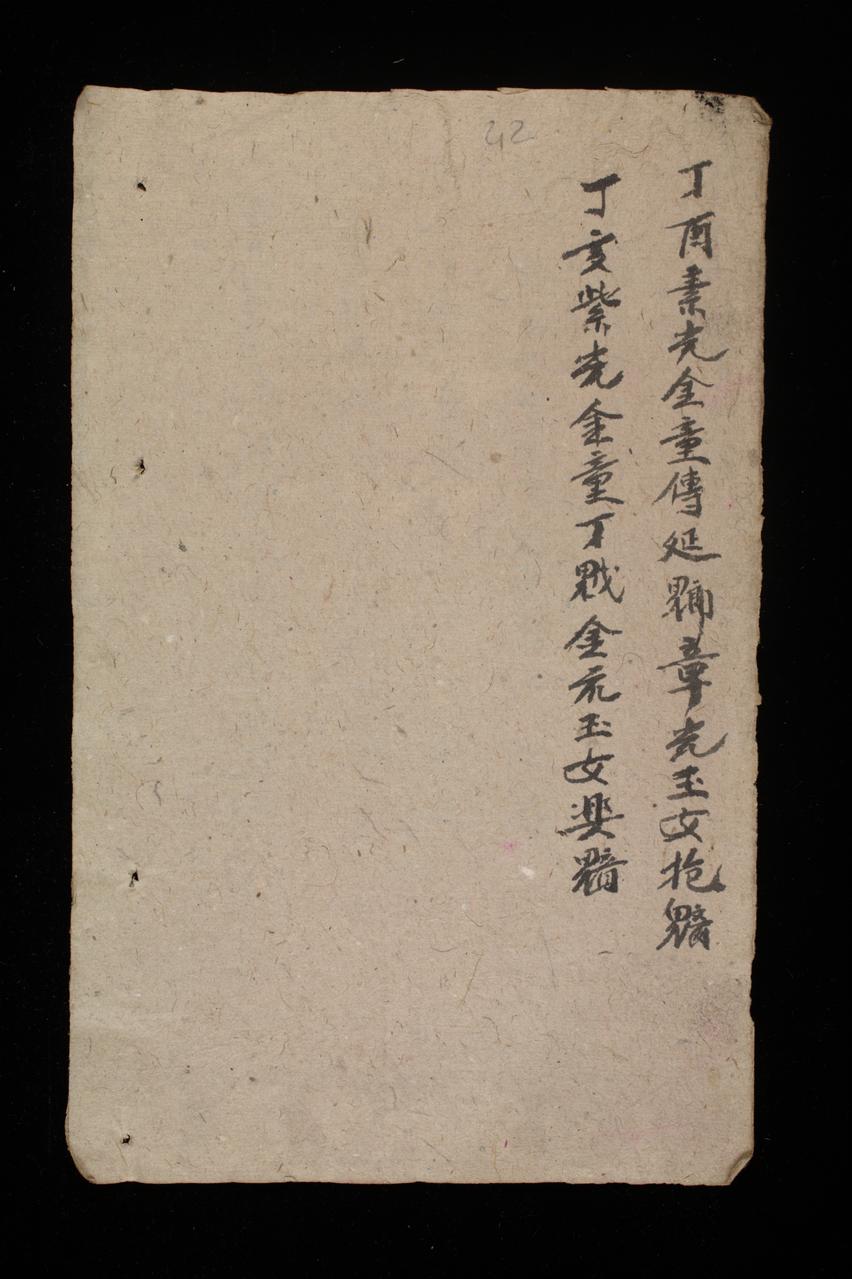 42
丁酉素光金童傳延章光玉女抱
丁亥紫光金童丁金元玉女